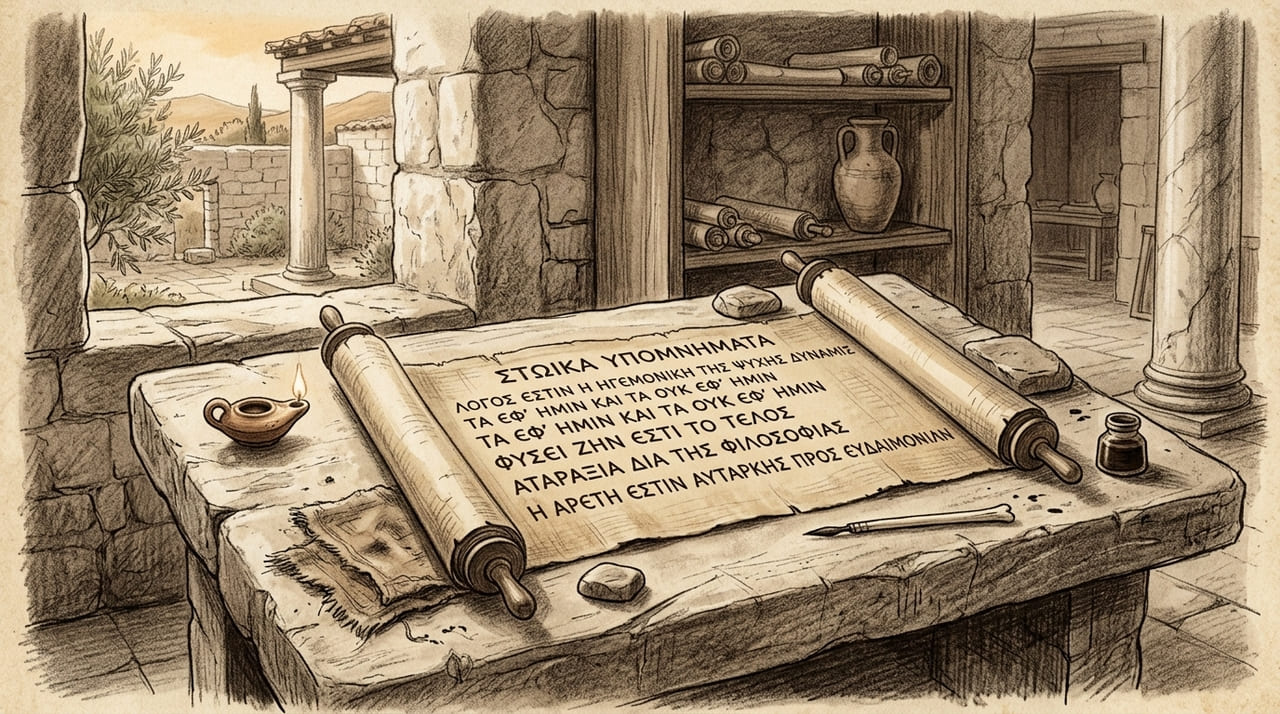 ΣΤΩΙΚΑ ΥΠΟΜΝΗΜΑΤΑ
ΛΟΓΟΣ ΕΣΤΙΝ Η ΗΓΕΜΟΝΙΚΗ ΤΗΣ ΨΥΧΗΣ ΔΥΝΑΜΙΣ
ΤΑ ΕΦ' ΗΜΙΝ ΚΑΙ ΤΑ ΟΥΚ ΕΦ' ΗΜΙΝ
ΤΑ ΕΦ' ΗΜΙΝ ΚΑΙ ΤΑ ΟΥΚ ΕΦ' ΗΜΙΝ
ΦΥΣΕΙ ΖΗΝ ΕΣΤΙ ΤΟ ΤΕΛΟΣ
ΑΤΑΡΑΞΙΑ ΔΙΑ ΤΗΣ ΦΙΛΟΣΟΦΙΑΣ
Η ΑΡΕΤΗ ΕΣΤΙΝ ΑΥΤΑΡΚΗΣ ΠΡΟΣ ΕΥΔΑΙΜΟΝΙΑΝ